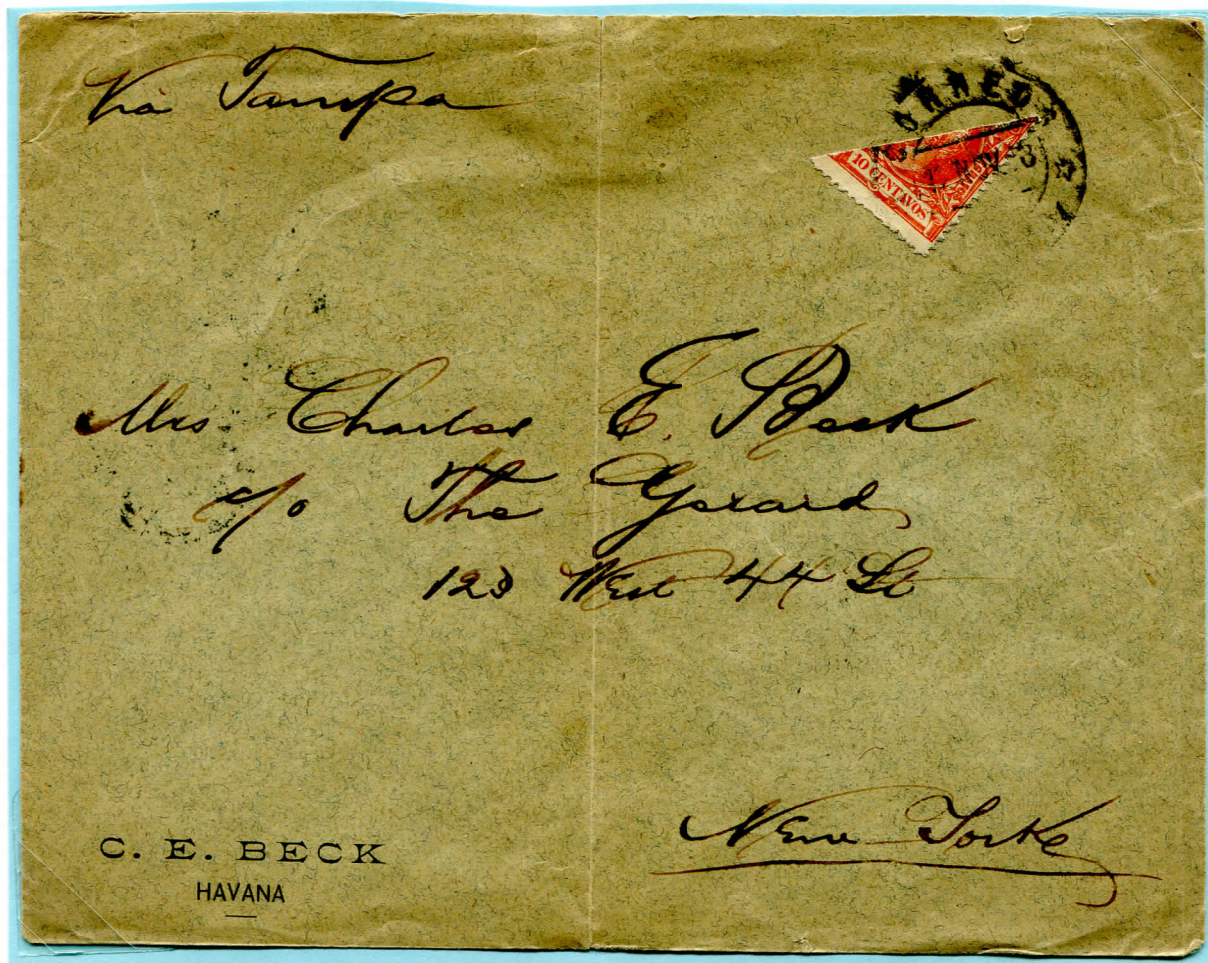 Via Tampa
10 CENTAVOS
NOV
3
Mrs Charles E. Beck
c/o The Gerard
123 West 44 St
New Yorke
C. E. BECK
HAVANA